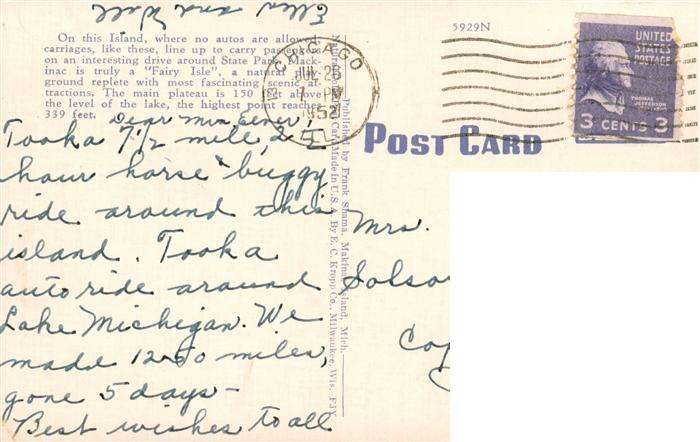 On this Island, where no autos are allowed
carriages, like these, line up to carry passengers
on an interesting drive around State Park. Mack-
inac is truly a "Fairy Isle", a natural play-
ground replete with most fascinating scenic at-
tractions. The main plateau is 150 feet above
the level of the lake, the highest point reaches
339 feet.
Dear Mrs
Took a 7½ mile, 2
hour horse buggy
ride around this
island. Took a
auto ride around
Lake Michigan. We
made 1250 miles,
gone 5 days –
Best wishes to all
Ella and Walt
Published by Frank Shama, Makinac Island, Mich.
Card Made in U.S.A. By E. C. Kropp Co., Milwaukee, Wis.
CHICAGO
JUL 25
7 PM
1952
5929N
UNITED
STATES
POSTAGE
THOMAS JEFFERSON
3 CENTS 3
POST CARD
Mrs.